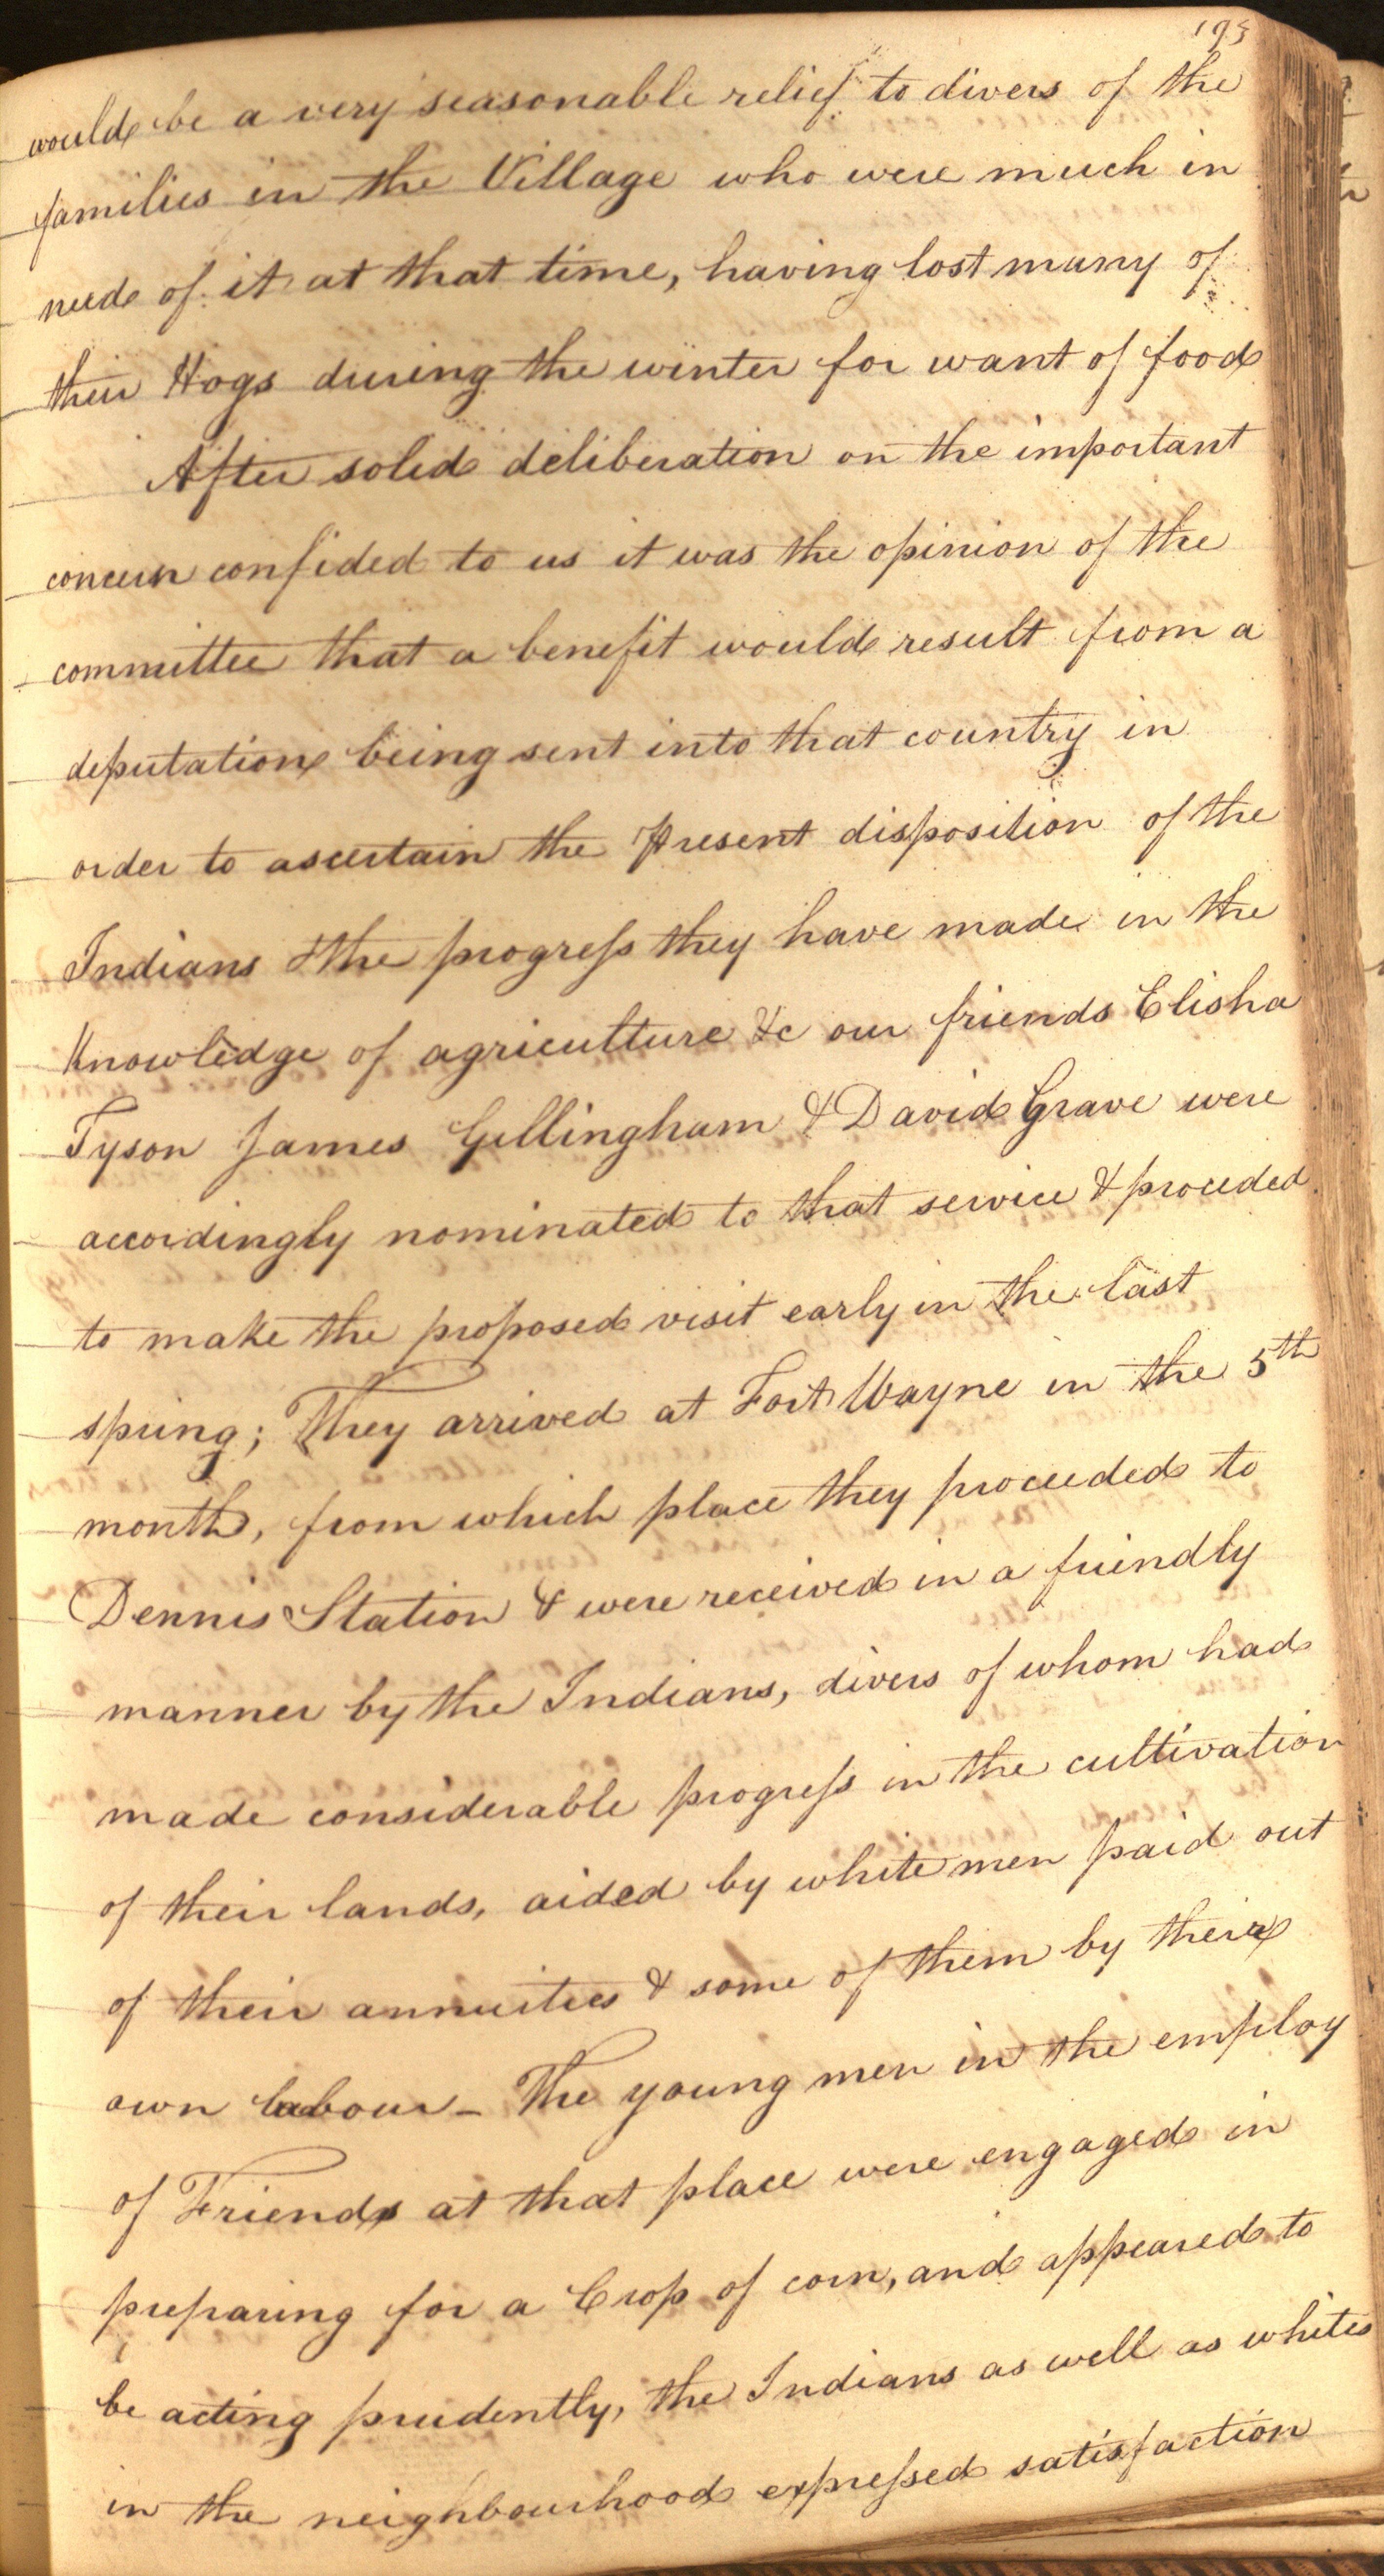 195
would be a very seasonable relief to divers of the
families in the Village who were much in
need of it at that time, having lost many of
their Hogs during the winter for want of food
After solid deliberation on the important
concern confided to us it was the opinion of the
committee that a benefit would result from a
deputation being sent into that country in
order to ascertain the Present disposition of the
Indians & the progress they have made in the
Knowledge of agriculture &c our friends Elisha
Tyson James Gillingham & David Grave were
accordingly nominated to that service & proceded
to make the proposed visit early in the last
spring; They arrived at Fort Wayne in the 5th
month, from which place they proceeded to
Dennis Station & were received in a friendly
manner by the Indians, divers of whom had
made considerable progress in the cultivation
of their lands, aided by white men paid out
of their annuities & some of them by their
own labour – The young men in the employ
of Friends at that place were engaged in
preparing for a Crop of corn, and appeared to
be acting prudently, the Indians as well as whites
in the neighbourhood expressed satisfaction